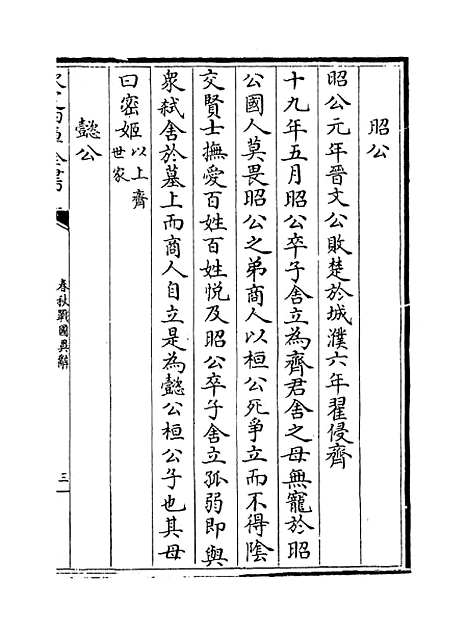 昭公
昭公元年晉文公敗楚於城濮六年翟侵齊
十九年五月昭公卒子舍立為齊君舍之母無寵於昭
公國人莫畏昭公之弟商人以桓公死爭立而不得陰
交賢士撫愛百姓百姓悅及昭公卒子舍立孤弱即與
衆弑舍於墓上而商人自立是為懿公桓公子也其母
曰密姬以上齊
世家
懿公
春秋戰國異辭
三